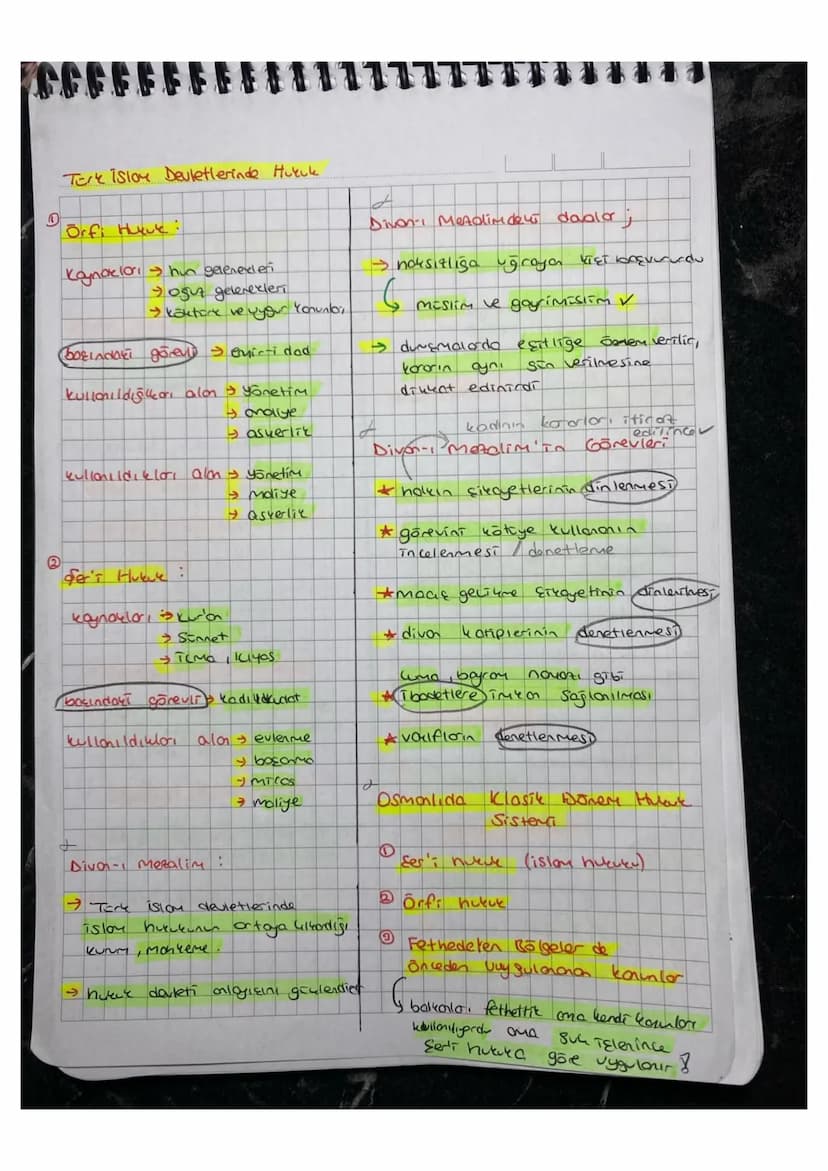 Türk İslam Devletlerinde Hukuk
① Örfi Hukuk :
Kaynakları → hun gelenekleri
→ oğuz gelenekleri
→ köktürk ve uygur kanunları
başındaki görevli → emir-i dad
kullanıldığı alan → yönetim
→ maliye
→ askerlik
kullanıldıkları alan → yönetim
→ maliye
→ askerlik
② Şer'i Hukuk :
kaynakları → Kur'an
→ Sünnet
→ İcma, kıyas
başındaki görevli → kadı
kullanıldıkları alan → evlenme
→ boşanma
→ miras
→ maliye
Divan-ı Mezalim :
→ Türk islam devletlerinde
islam hukukunun ortaya çıkardığı
kurum, mahkeme.
→ hukuk devleti anlayışını güçlendirir
Divan-ı Mezalimdeki davalar ;
→ haksızlığa uğrayan kişi başvururdu
↳ müslim ve gayrimüslim ✓
→ duruşmalarda eşitliğe önem verilir,
kararın aynı gün verilmesine
dikkat edinirdi
kadının kararları itiraz
edilince ✓
Divan-ı Mezalim'in Görevleri
★ halkın şikayetlerinin dinlenmesi
★ görevini kötüye kullananın
incelenmesi / denetleme
★ maaş gecikme şikayetinin dinlenilmesi
★ divan katiplerinin denetlenmesi
cuma, bayram namazı gibi
★ ibadetlere imkan sağlanılması
★ vakıfların denetlenmesi
Osmanlıda Klasik Dönem Hukuk
Sistemi
① Şer'i hukuk (islam hukuku)
② Örfi hukuk
③ Fethedilen Bölgeler de
önceden uygulanan kanunlar
↳ balkanları fethettik ama kendi kanunları
kullanılıyordu ama suç işlenince
Şer'i hukuka göre uygulanır !